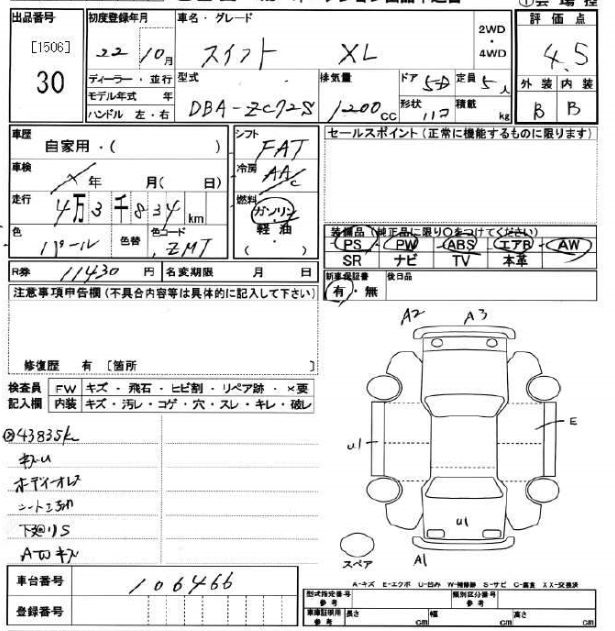 ① 会場控
出品番号 [1506] 30
初度登録年月 22 10月
車名・グレード スイフト XL
2WD・4WD
評価点 4.5
外装 B 内装 B
ディーラー・並行
モデル年式 年
ハンドル 左・右
型式 DBA-ZC72S
排気量 1200 CC
ドア 5D 定員 5人
形状 ハコ 積載 kg
車歴 自家用・( )
車検 年 月( 日)
走行 4万3千834km
色 パール 色替 色コード ZMT
シフト FAT
冷房 AAC
燃料 ガソリン・軽油・( )
セールスポイント(正常に機能するものに限ります)
装備品(純正品に限り○をつけてください)
PS・PW・ABS・エアB・AW
SR ナビ TV 本革
新車保証書 有・無 後日品
R券 11430円 名変期限 月 日
注意事項申告欄(不具合内容等は具体的に記入して下さい)
修復歴 有 [箇所 ]
検査員 FW キズ・飛石・ヒビ割・リペア跡・×要
記入欄 内装 キズ・汚レ・コゲ・穴・スレ・キレ・破レ
43835K
下廻りS
AWキズ
A2 A3
E
U1
U1
A1
スペア
A-キズ E-エクボ U-凹み W-補修跡 S-サビ C-腐食 XX-交換済
車台番号 106466
登録番号
型式指定番号 参考 類別区分番号 参考
車庫証明用 参考 長さ cm 幅 cm 高さ cm